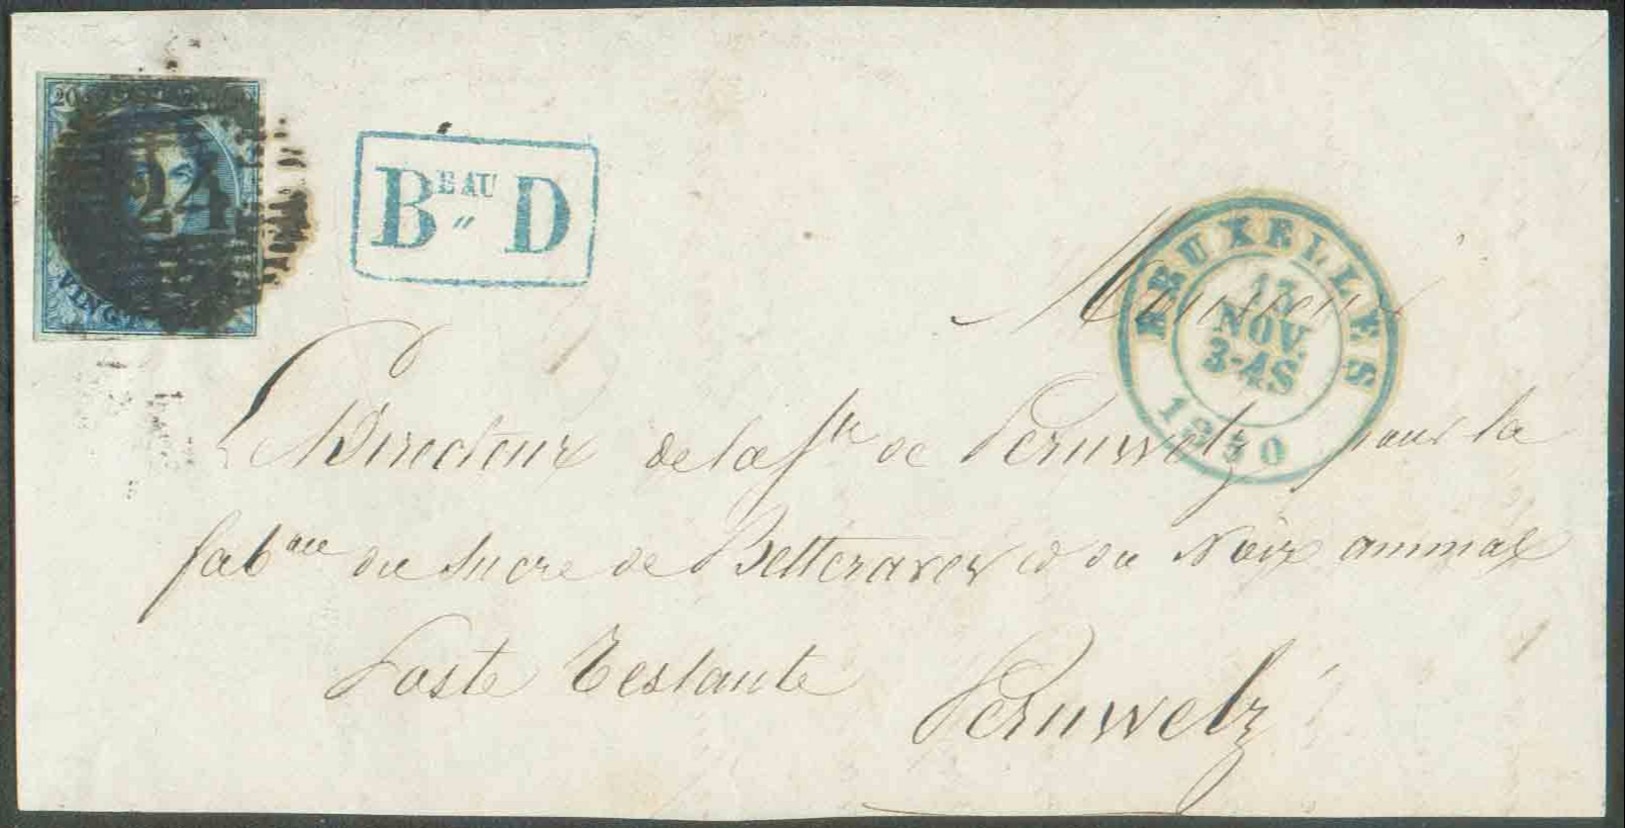 20
24
VINGT
Bᴱᴬᵁ " D
BRUXELLES
17
NOV.
3-4S
1850
Monsieur
Directeur de la Sté de Peruwelz pour la
fabque du Sucre de Betteraves & du Noir animal
Poste Restante
Peruwelz